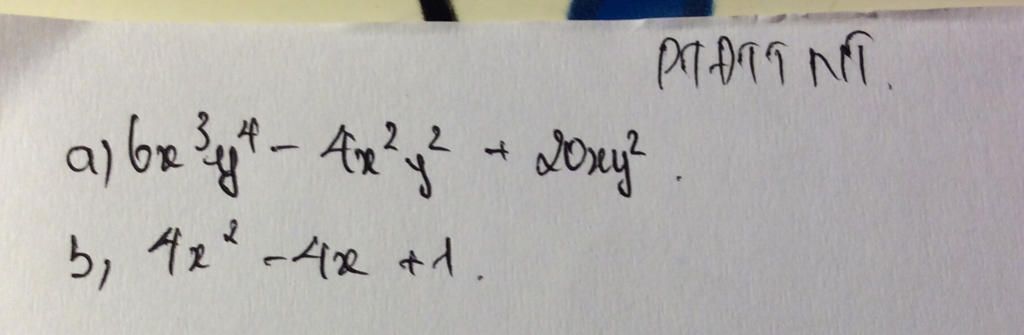 PTĐTT NT.
a) 6x³y⁴ - 4x²y² + 20xy².
b, 4x² - 4x + 1.